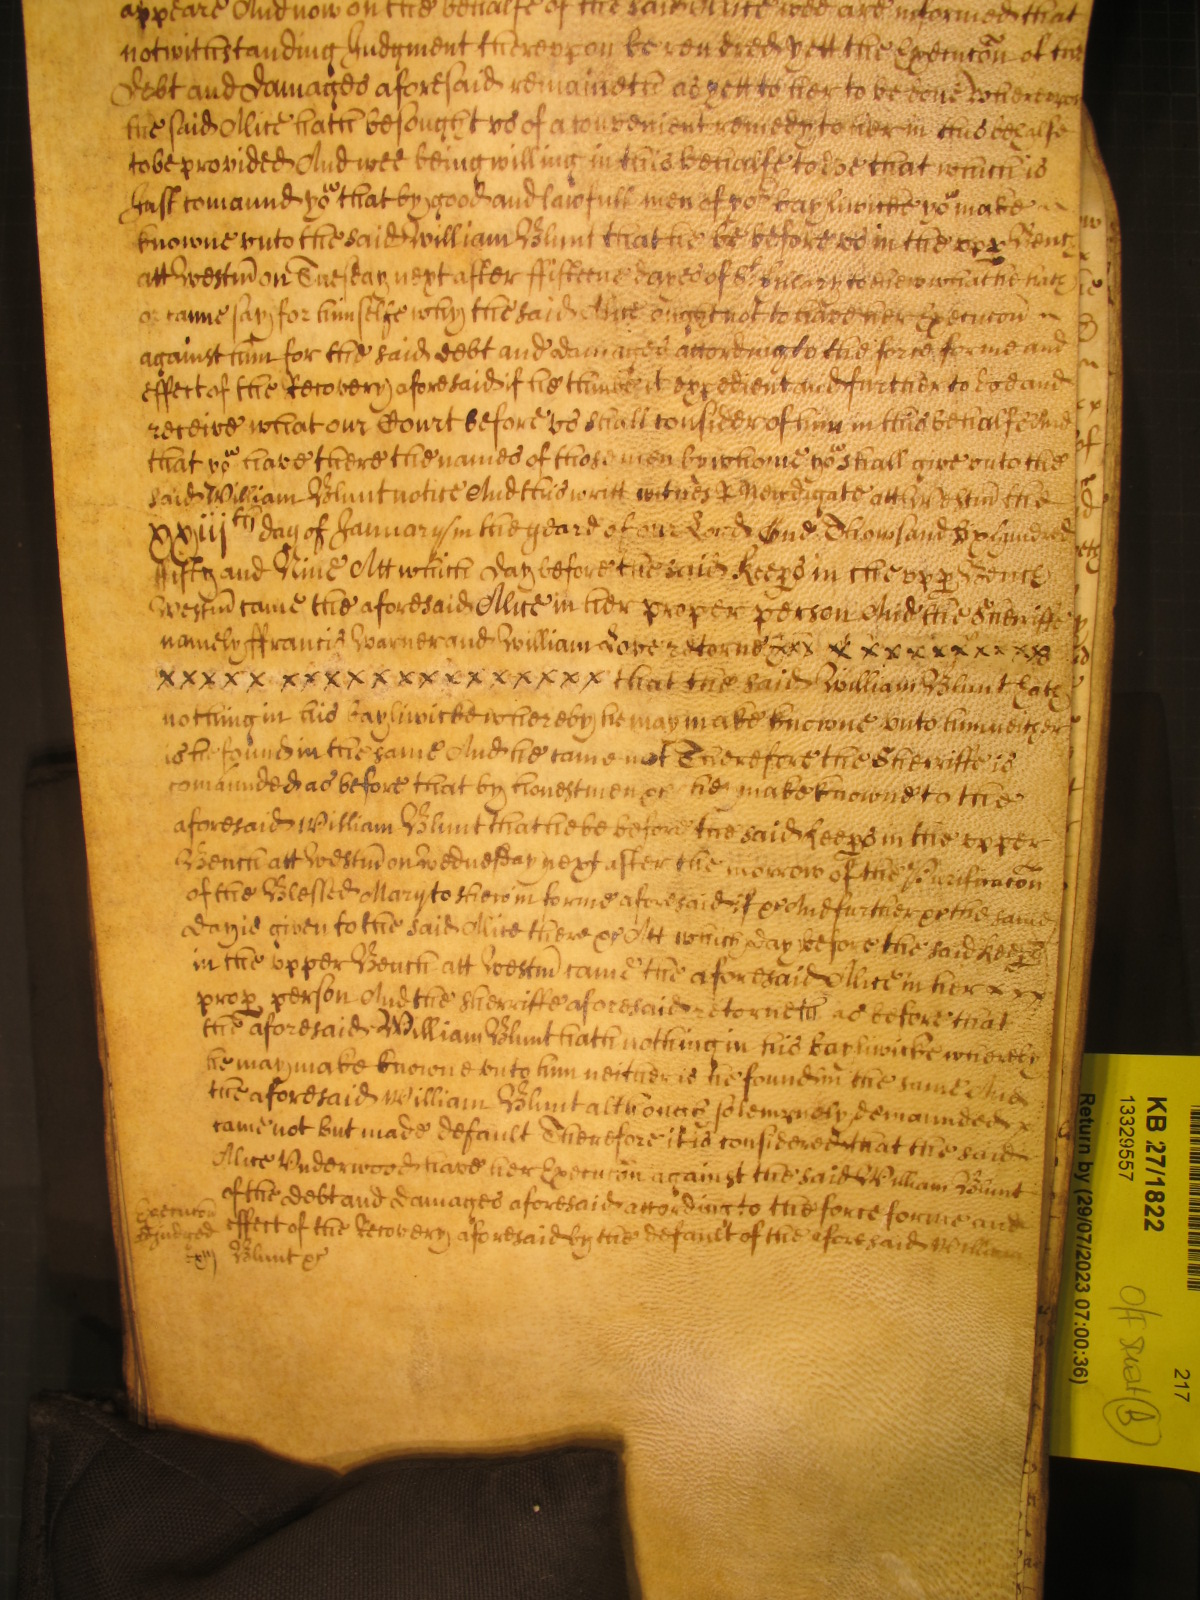 appeare And now on the behalfe of the said Alice wee are informed that
notwithstanding Judgment thereuppon be rendred yett the Execucõn of the
debt and damages aforesaid remaineth as yett to her to be done Whereuppon
the said Alice hath besought vs of a convenient remedy to her in this behalfe
to be provided And wee being willing in this behalfe to doe that which is
Just comaund yoᵘ that by good and lawfull men of yoʳ bayliwicke yoᵘ make
knowne vnto the said William Blunt that he be before vs in the vpp Bench
att Westm̃ on Tuesday next after fifteene dayes of Sᵗ Hillary to shew what he hath
or canne say for himselfe why the said Alice ought not to have her Execucõn
against him for the said debt and damages according to the force forme and
effect of the Recovery aforesaid if he thinke it expedient and further to doe and
receive what our Court before vs shall consider of him in this behalfe And
that yoᵘ have there the names of those men by whome yoᵘ shall give vnto the
said William Blunt notice And this writt witnes R Newdigate att Westm̃ the
xxiijᵗʰ day of January in the yeare of our Lord One Thowsand Six hundred
fifty and Nine Att which day before the said Keeps in the vpp Bench
Westm̃ came the aforesaid Alice in her proper person And the Sherriffe
namely ffrancis Warner and William Love retorne xxx x x x x x x x x x
x x x x x x x x x x x x x x x x x x x that the said William Blunt hath
nothing in his bayliwicke whereby he may make knowne vnto him neither
is he found in the same And he came not Therefore the Sherriffe is
comaunded as before that by honest men &c he make knowne to the
aforesaid William Blunt that he be before the said Keeps in the vpper
Bench att Westm̃ on Wednesday next after the morrow of the Purificacõn
of the Blessed Mary to shew in forme aforesaid if &c And further &c the same
day is given to the said Alice there &c Att which day before the said Keeps
in the vpper Bench att Westm̃ came the aforesaid Alice in her x x x
prop person And the Sherriffe aforesaid retorneth as before that
the aforesaid William Blunt hath nothing in his bayliwicke whereby
he may make knowne vnto him neither is he found in the same And
the aforesaid William Blunt although solempnely demaunded x
came not but made default Therefore it is considered that the said
Alice Vnderwood have her Execucõn against the said William Blunt
of the debt and damages aforesaid according to the force forme and
Execucõn effect of the Recovery aforesaid by the default of the aforesaid William
Blunt &c
KB 27/1822
13329557
Return by (29/07/2023 07:00:36)
217
B